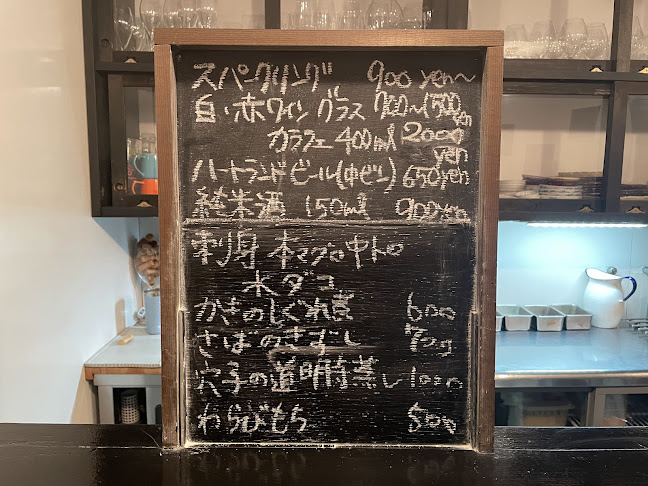 スパークリング 900 yen~
白・赤ワイン グラス 700~1500 yen
カラフェ 400ml 2000 yen
ハートランドビール(中ビン) 650yen
純米酒 150ml 900yen
刺身 本マグロ中トロ
水ダコ
かきのしぐれ煮 600
さばのきずし 700
穴子の道明寺蒸し 1000
わらびもち 500